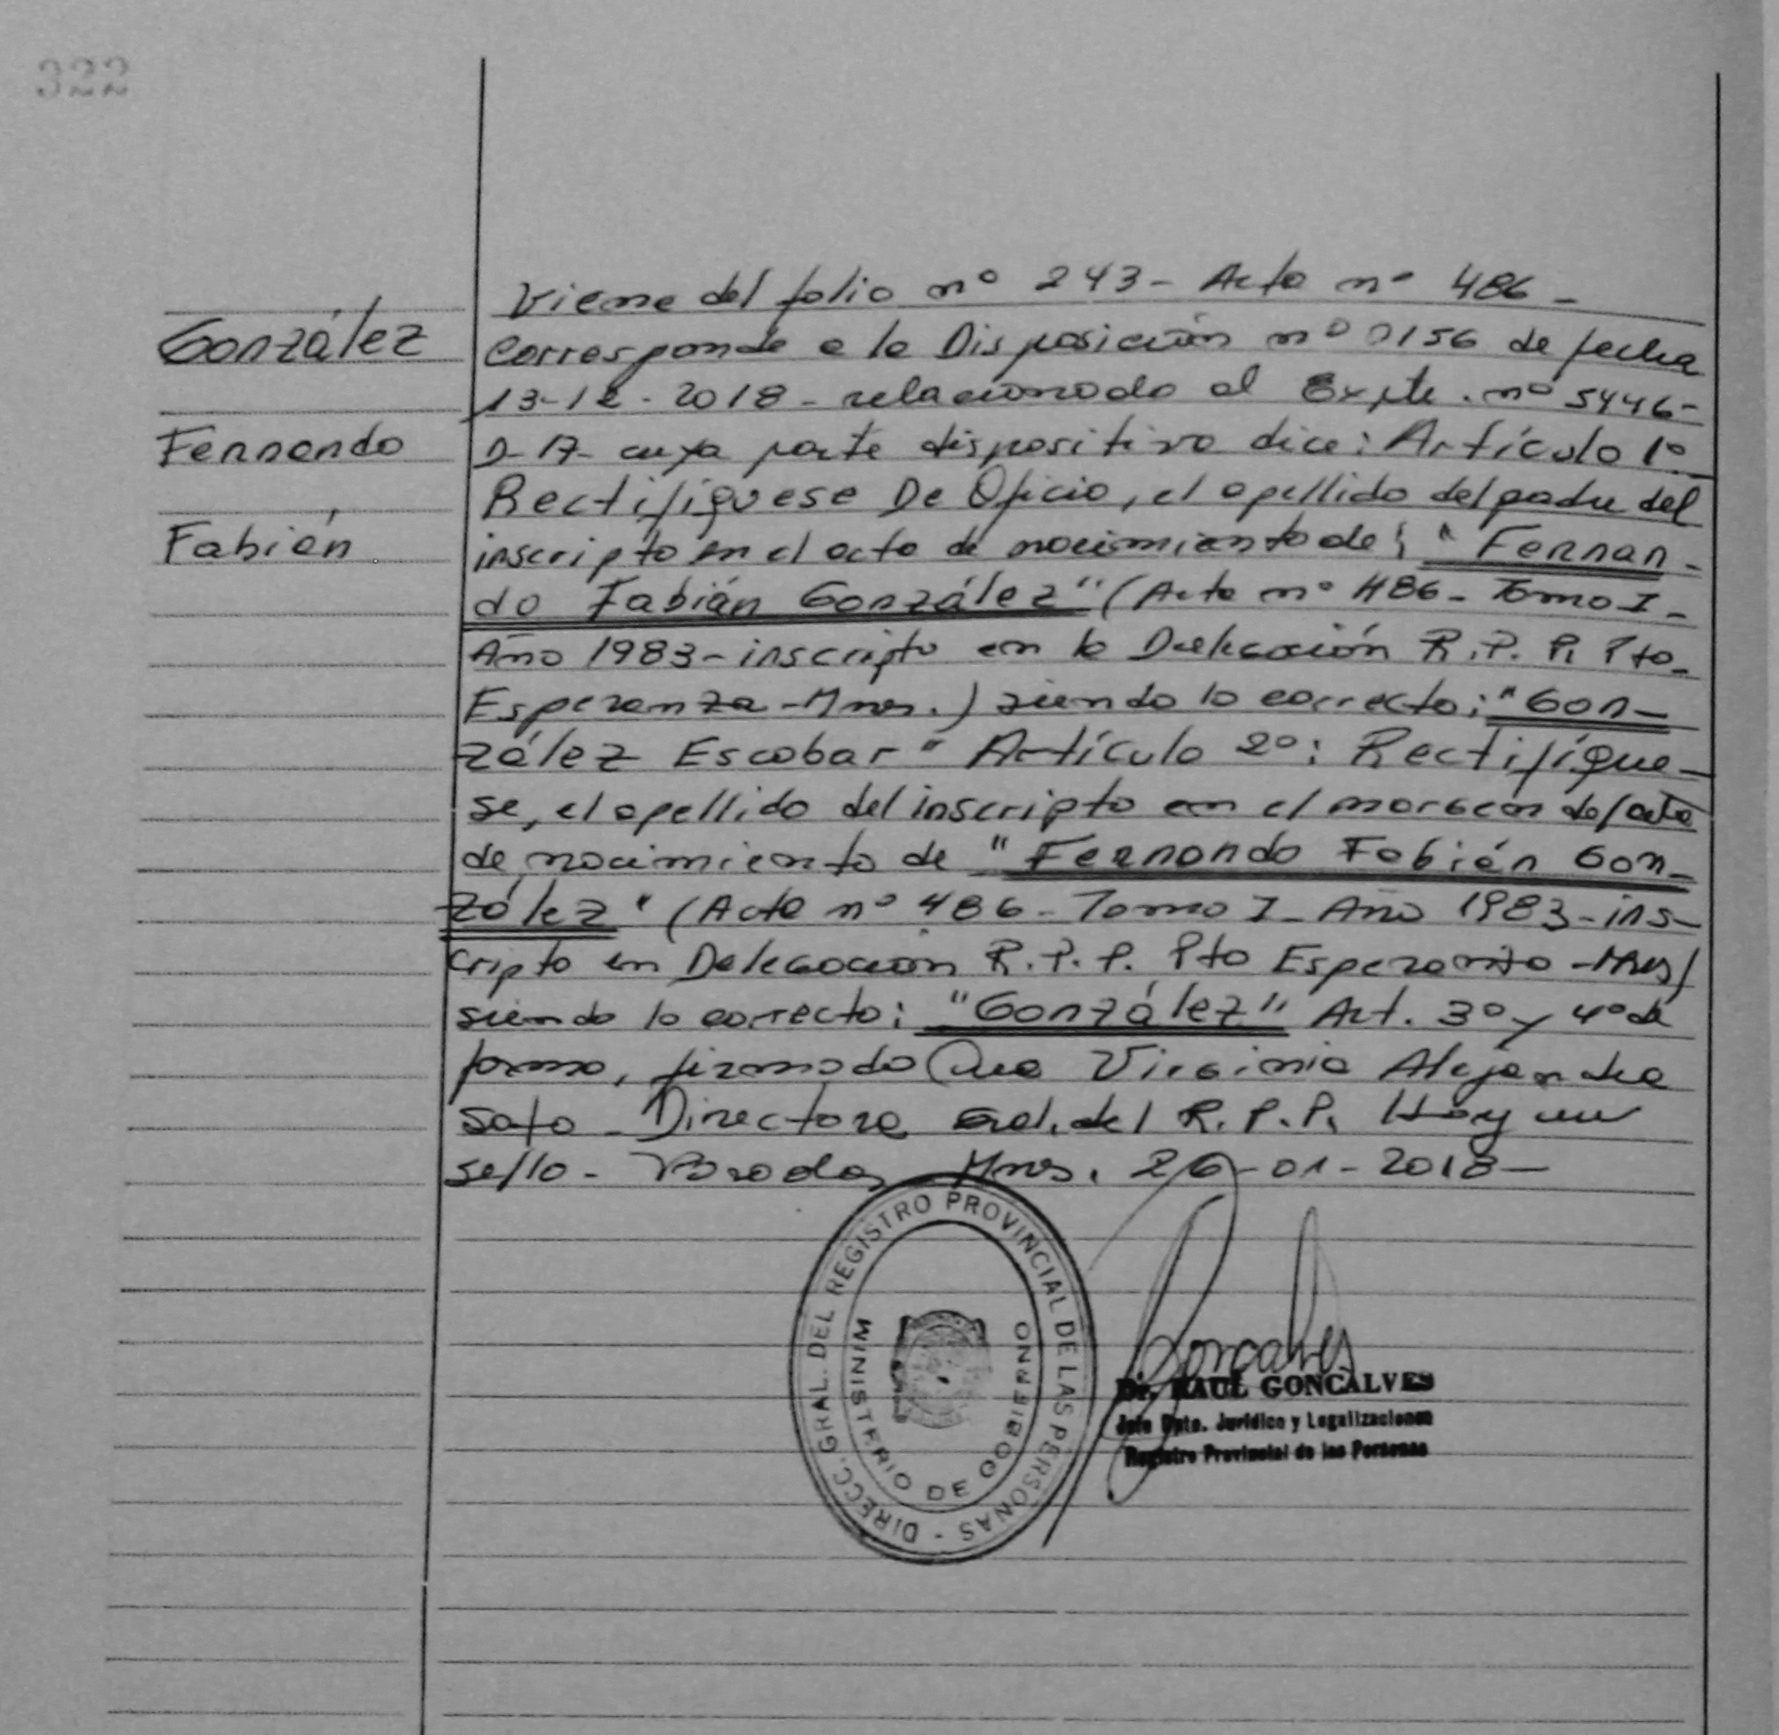 322
González
Fernando
Fabián
Viene del folio nº 243 - Acta nº 486 -
Corresponde a la Disposición nº 0156 de fecha
13-12-2018 - relacionado al Expte. nº 5446-
D-17- cuya parte dispositiva dice: Artículo 1º
Rectifíquese De Oficio, el apellido del padre del
inscripto en el acta de nacimiento de: "Fernan-
do Fabián González" (Acta nº 486 - Tomo I -
Año 1983 - inscripto en la Delegación R.P.P. Pto
Esperanza - Mnes.) siendo lo correcto: "Gon-
zález Escobar" Artículo 2º: Rectifíque-
se, el apellido del inscripto en el margen del acta
de nacimiento de "Fernando Fabián Gon-
zález" (Acta nº 486 - Tomo I - Año 1983 - ins-
cripto en Delegación R.P.P. Pto Esperanza - Mnes)
siendo lo correcto: "González" Art. 3º y 4º de
forma, firmado Virginia Alejandra
Soto - Directora Gral. del R.P.P. Hay un
sello - Posadas, Mnes. 26-01-2018 -
DIRECC. GRAL. DEL REGISTRO PROVINCIAL DE LAS PERSONAS -
MINISTERIO DE GOBIERNO
Goncalves
Dr. RAUL GONCALVES
Jefe Dpto. Jurídico y Legalizaciones
Registro Provincial de las Personas